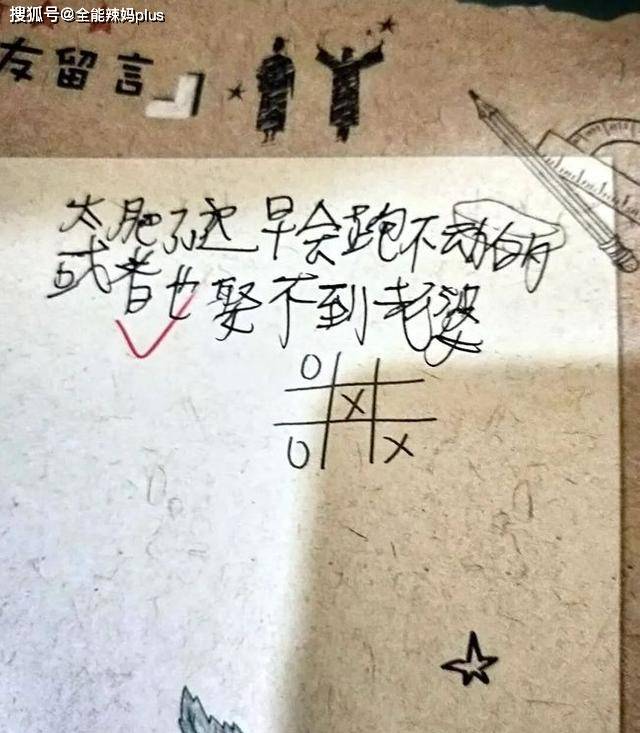 搜狐号@全能辣妈plus
友留言
太肥了迟早会跑不动的
或者也娶不到老婆
O
X
O X